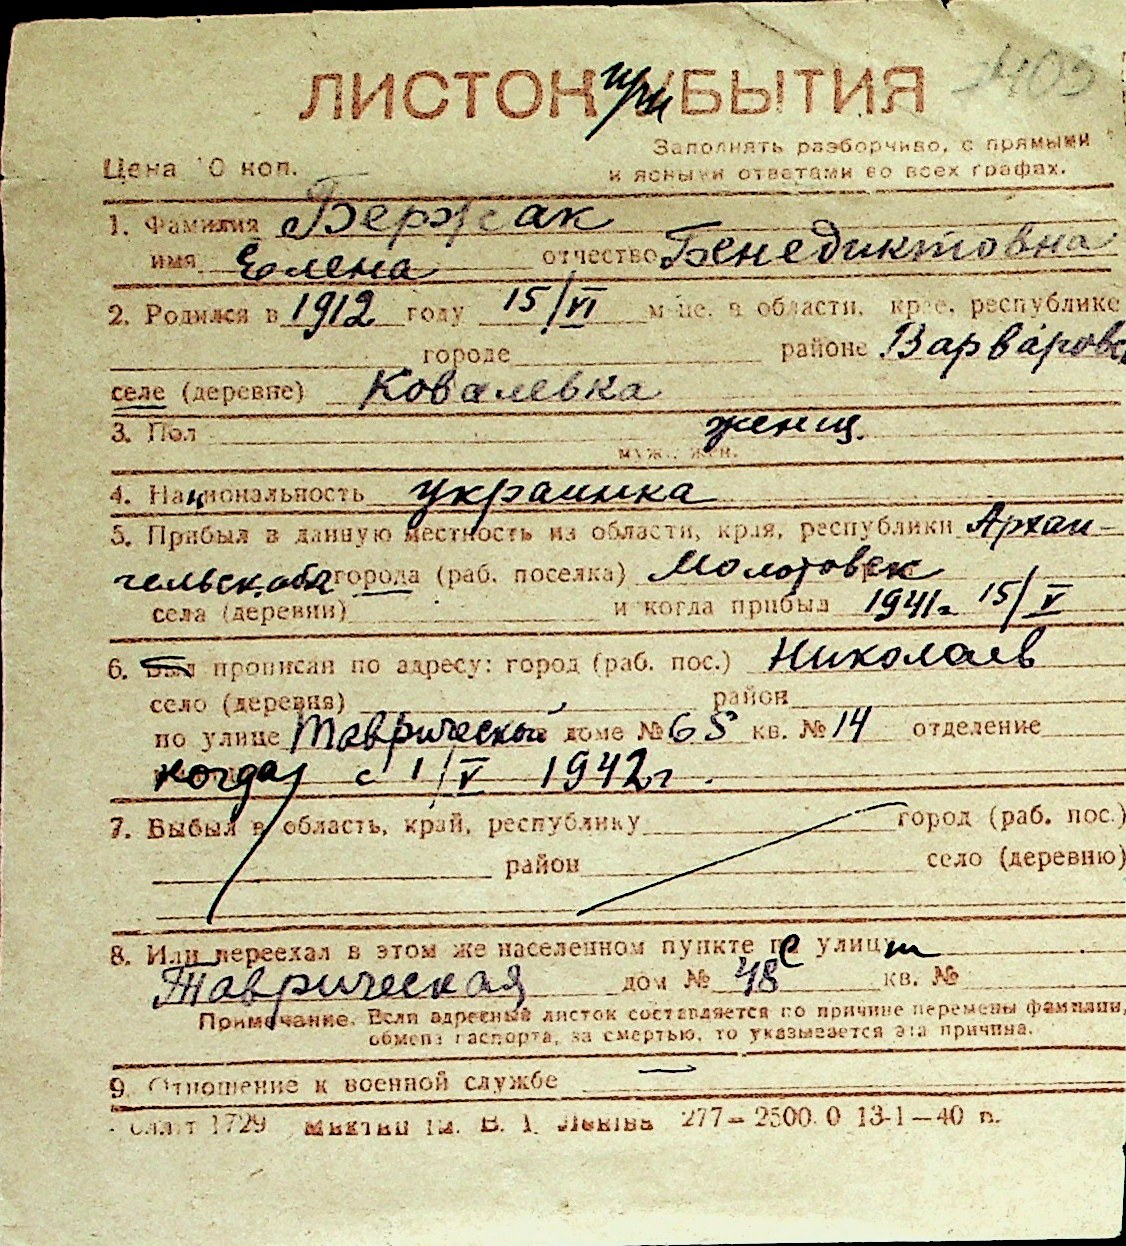 ЛИСТОК при УБЫТИЯ
Цена 10 коп.
Заполнять разборчиво, с прямыми
и ясными ответами во всех графах.
1. Фамилия Бержак
имя Елена отчество Бенедиктовна
2. Родился в 1912 году 15/VI м-це, в области, крае, республике
городе районе Варваровс
селе (деревне) Ковалевка
3. Пол женщ.
муж., жен.
4. Национальность украинка
5. Прибыл в данную местность из области, края, республики Архан-
гельск. обл. города (раб. поселка) Молотовск
села (деревни) и когда прибыл 1941г. 15/V
6. Был прописан по адресу: город (раб. пос.) Николаев
село (деревня) район
по улице Таврической доме № 65 кв. № 14 отделение
когда с 1/V 1942г.
7. Выбыл в область, край, республику город (раб. пос.)
район село (деревню)
8. Или переехал в этом же населенном пункте с улицы
Таврическая дом № 48 кв. №
Примечание. Если адресный листок составляется по причине перемены фамилии,
обмена паспорта, за смертью, то указывается эта причина.
9. Отношение к военной службе —
1729 277–2500 0 13-1–40 п.